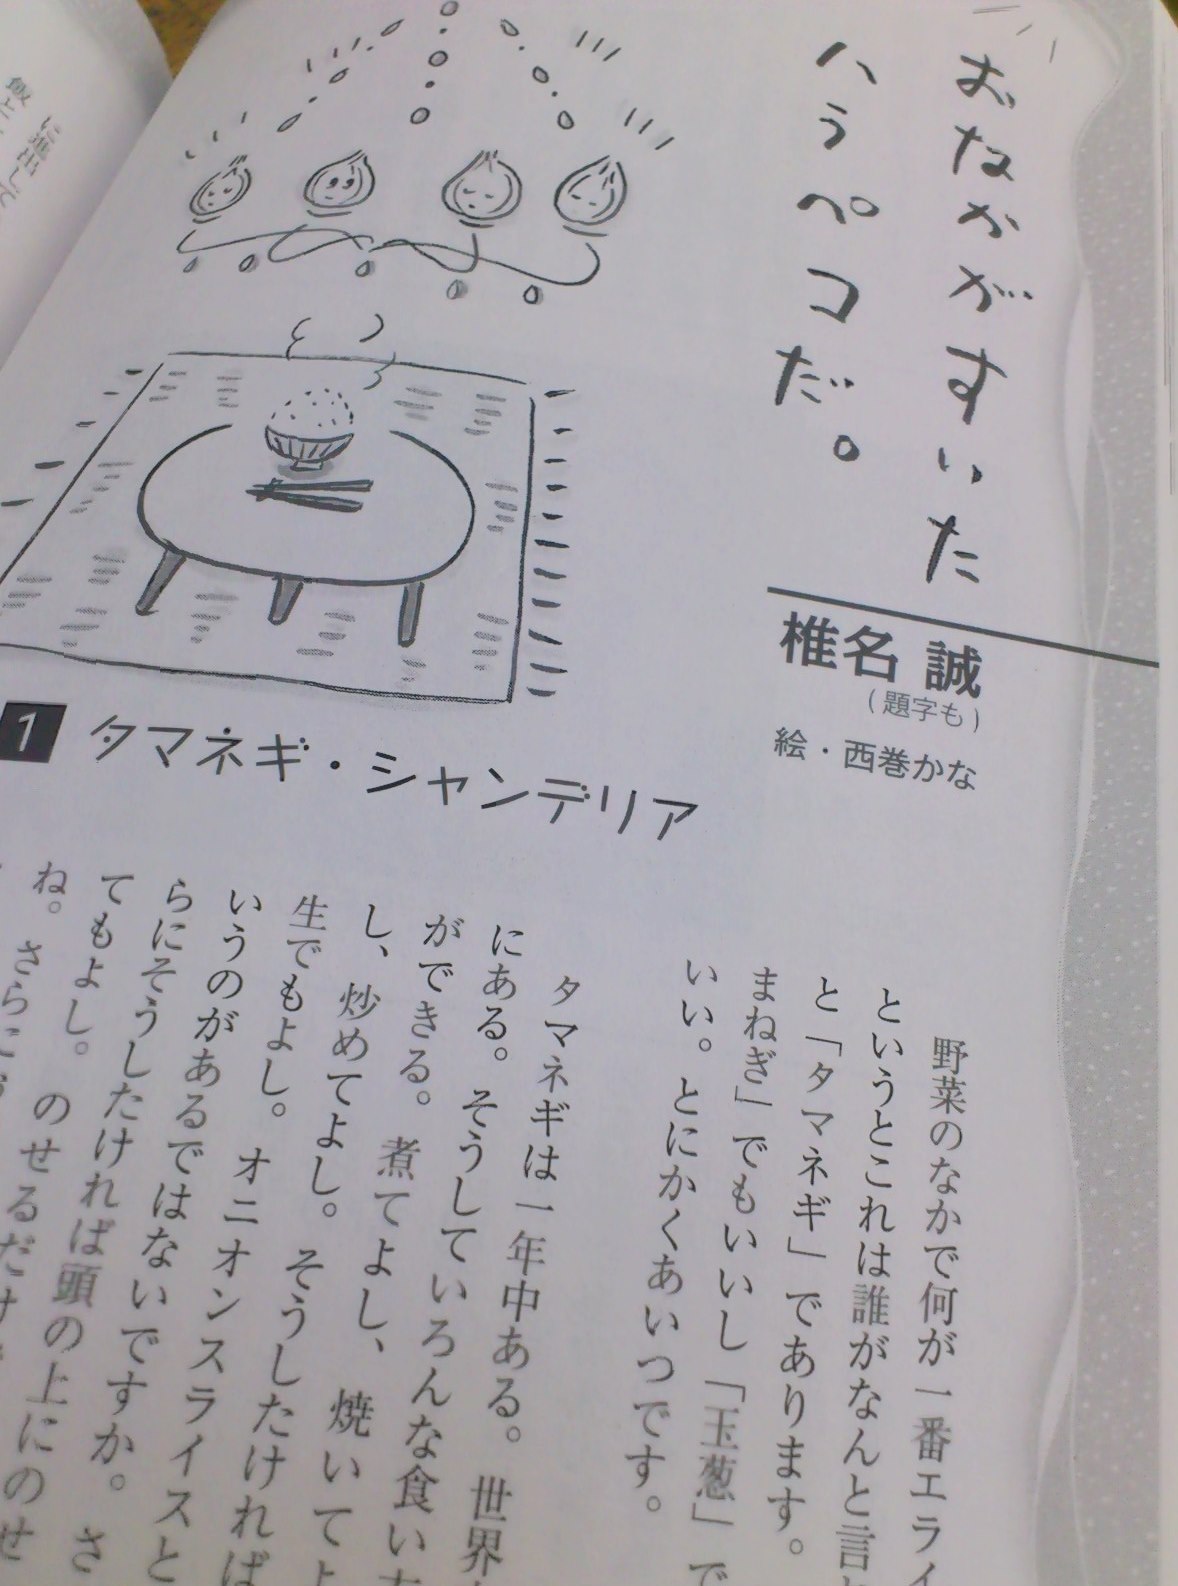 おなかがすいた
ハラペコだ。
椎名 誠
(題字も)
絵・西巻かな
1 タマネギ・シャンデリア
野菜のなかで何が一番エライ
というとこれは誰がなんと言
と「タマネギ」であります。
まねぎ」でもいいし「玉葱」で
いい。とにかくあいつです。
タマネギは一年中ある。世界
にある。そうしていろんな食い
ができる。煮てよし、焼いてよ
し、炒めてよし。そうしたければ
生でもよし。オニオンスライスと
いうのがあるではないですか。さ
らにそうしたければ頭の上にのせ
てもよし。のせるだけ
ね。さらに